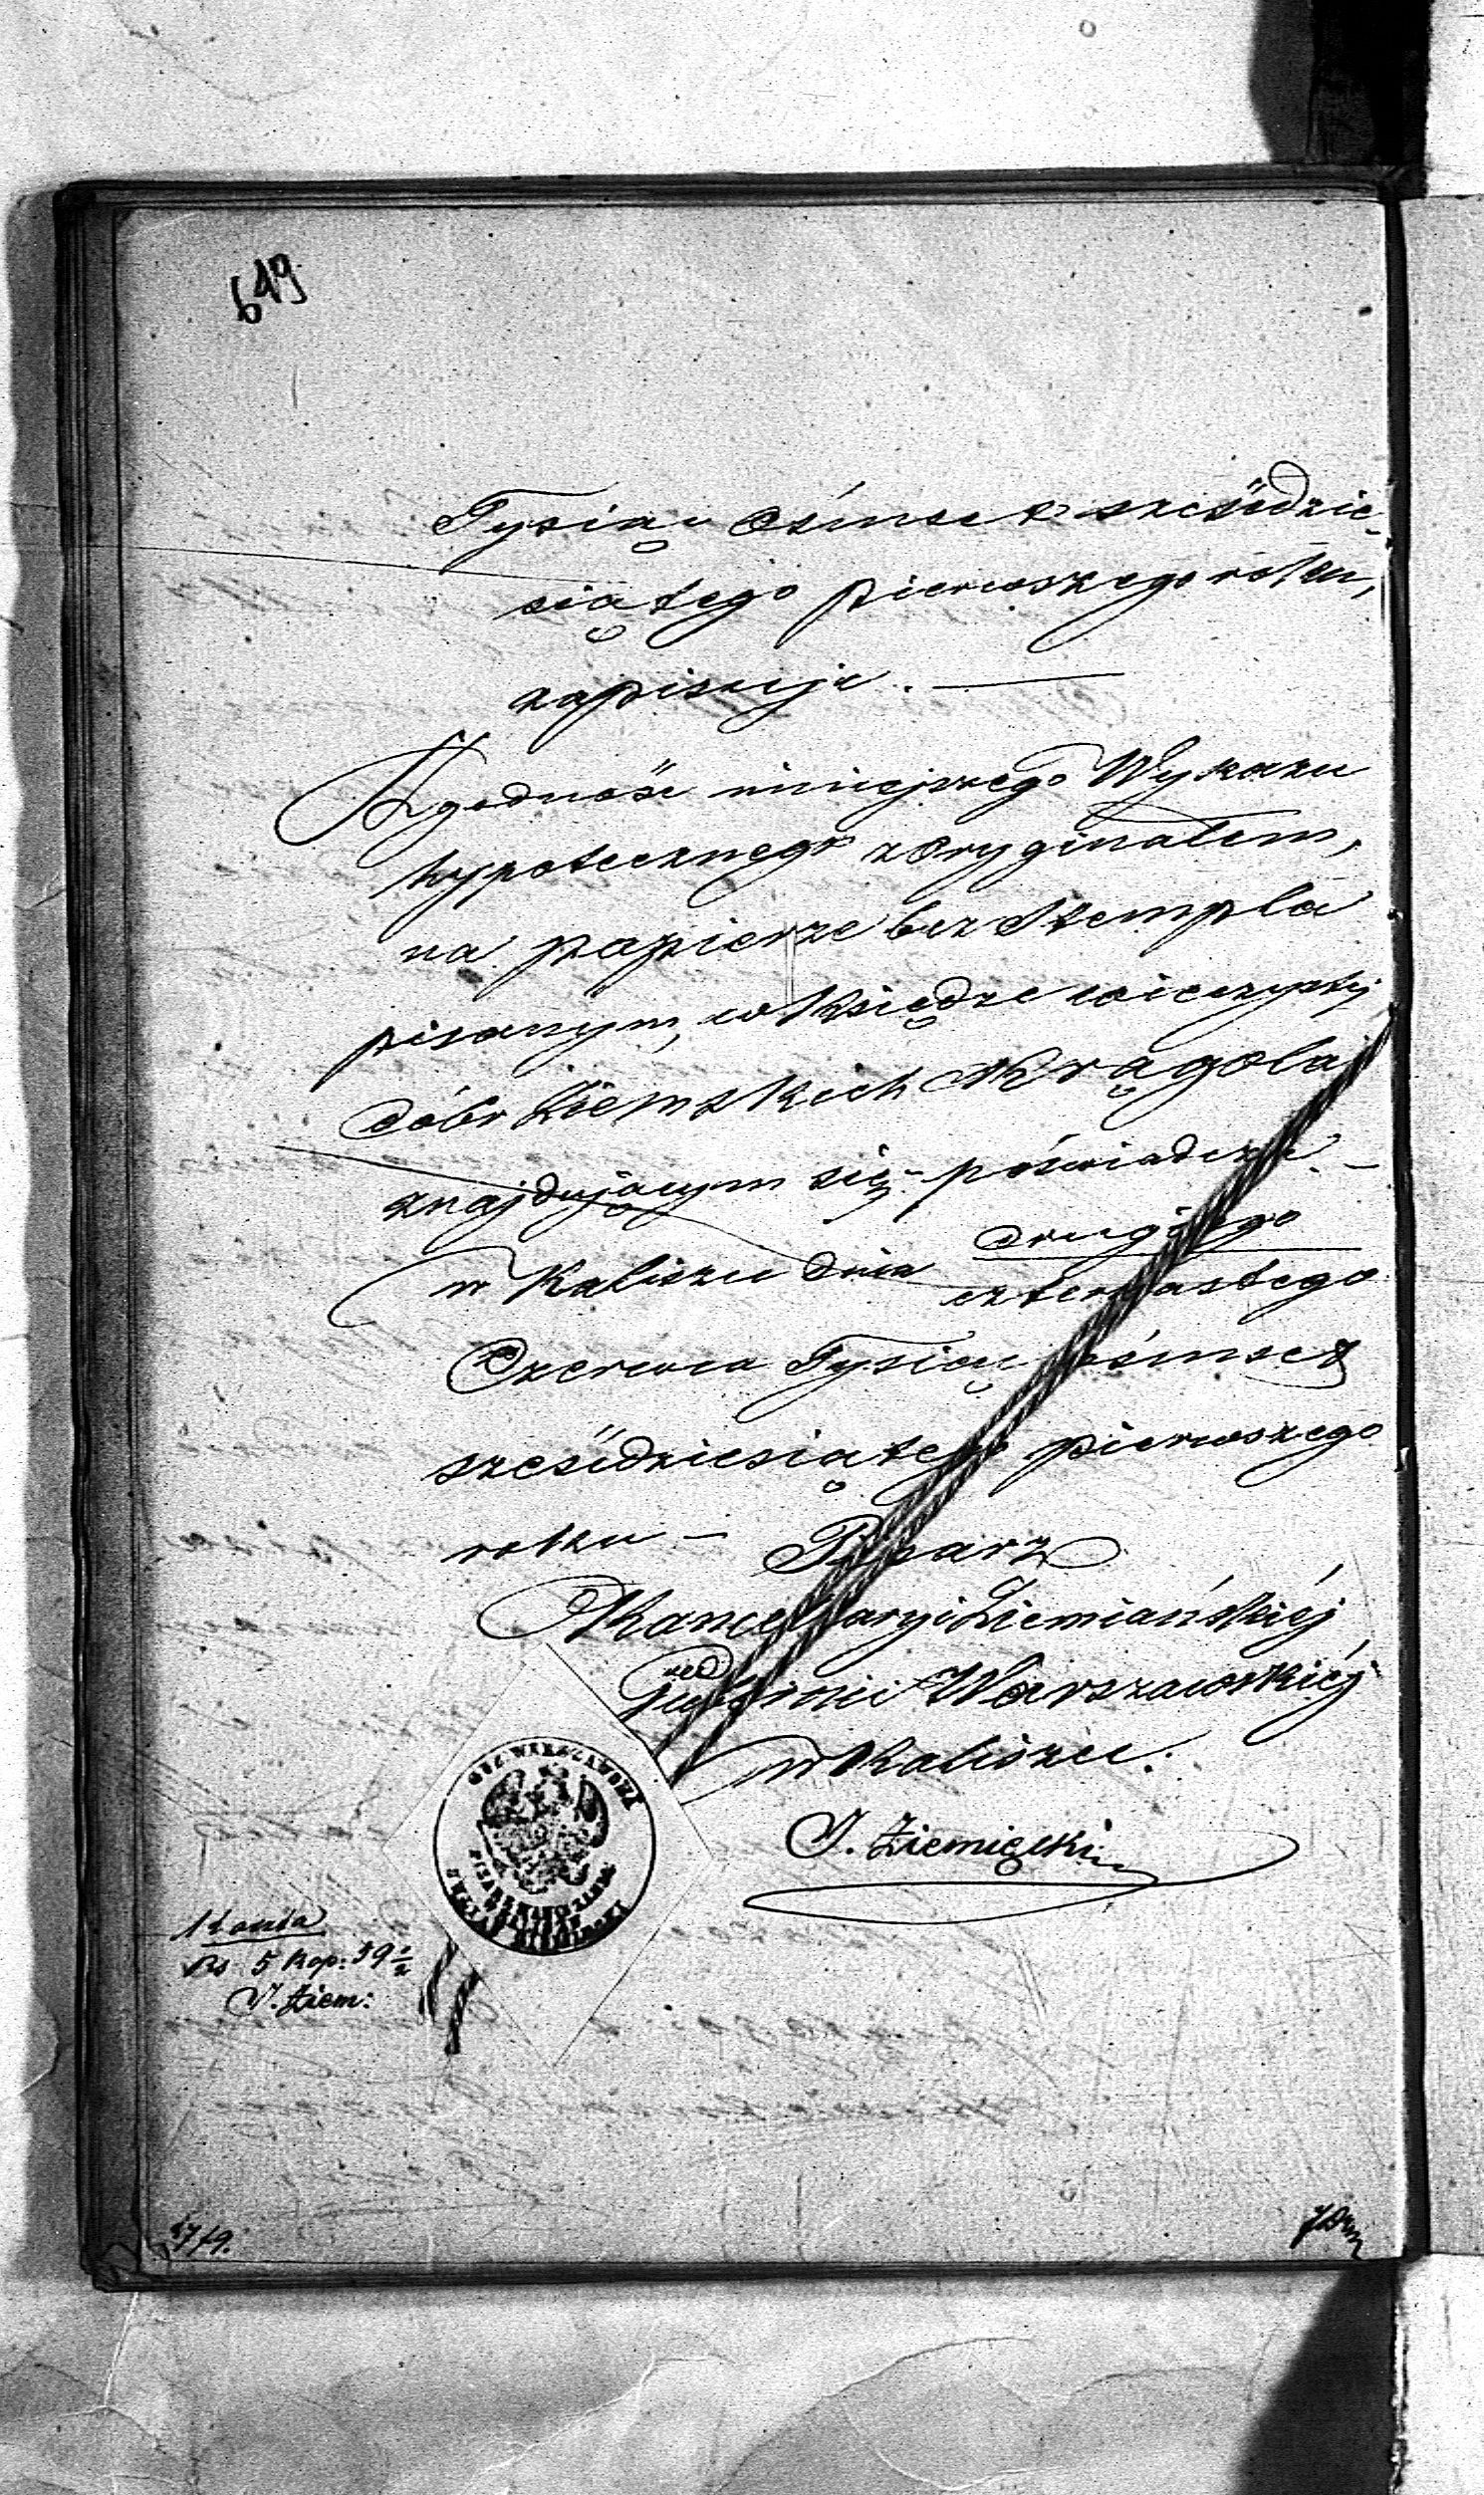 649
Tysiąc Ośmset sześćdzie-
siątego pierwszego roku,
zapisuje. —
Zgodność niniejszego Wykazu
hypotecznego z Oryginałem,
na papierze bez Stempla
pisanym, w Księdze wieczystej
dóbr Ziemskich Krągola
znajdującym się poświadcza. —
w Kaliszu dnia drugiego
czternastego
Czerwca Tysiąc ośmset
sześćdziesiątego pierwszego
roku — Pisarz
Kancellaryi Ziemiańskiéj
Gubernii Warszawskiéj
w Kaliszu.
J. Ziemięcki
GUB. WARSZAWSKA
Rs 5 Kop: 59 ½
J. Ziem: